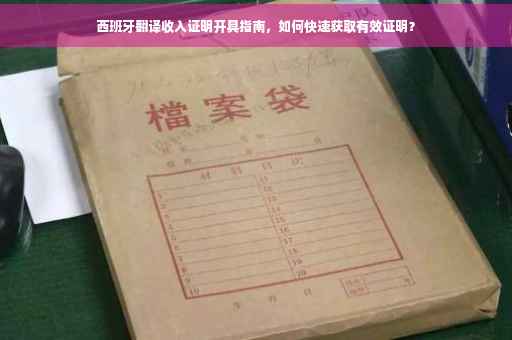 西班牙翻译收入证明开具指南，如何快速获取有效证明？
檔案袋
材料目次
1 11
2 12
3 13
4 14
5 15
6 16
7 17
8 18
9 19
10 20
年 月 日